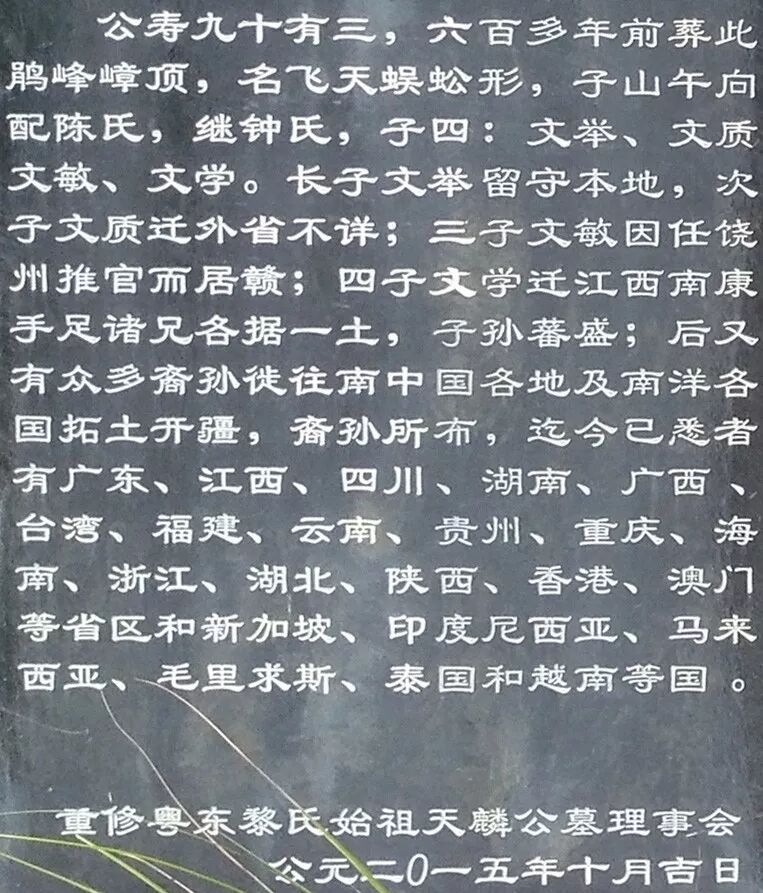 公寿九十有三，六百多年前葬此
鹃峰嶂顶，名飞天蜈蚣形，子山午向
配陈氏，继钟氏，子四：文举、文质
文敏、文学。长子文举留守本地，次
子文质迁外省不详；三子文敏因任饶
州推官而居赣；四子文学迁江西南康
手足诸兄各据一土，子孙蕃盛；后又
有众多裔孙徙往南中国各地及南洋各
国拓土开疆，裔孙所布，迄今已悉者
有广东、江西、四川、湖南、广西、
台湾、福建、云南、贵州、重庆、海
南、浙江、湖北、陕西、香港、澳门
等省区和新加坡、印度尼西亚、马来
西亚、毛里求斯、泰国和越南等国。
重修粤东黎氏始祖天麟公墓理事会
公元二0一五年十月吉日